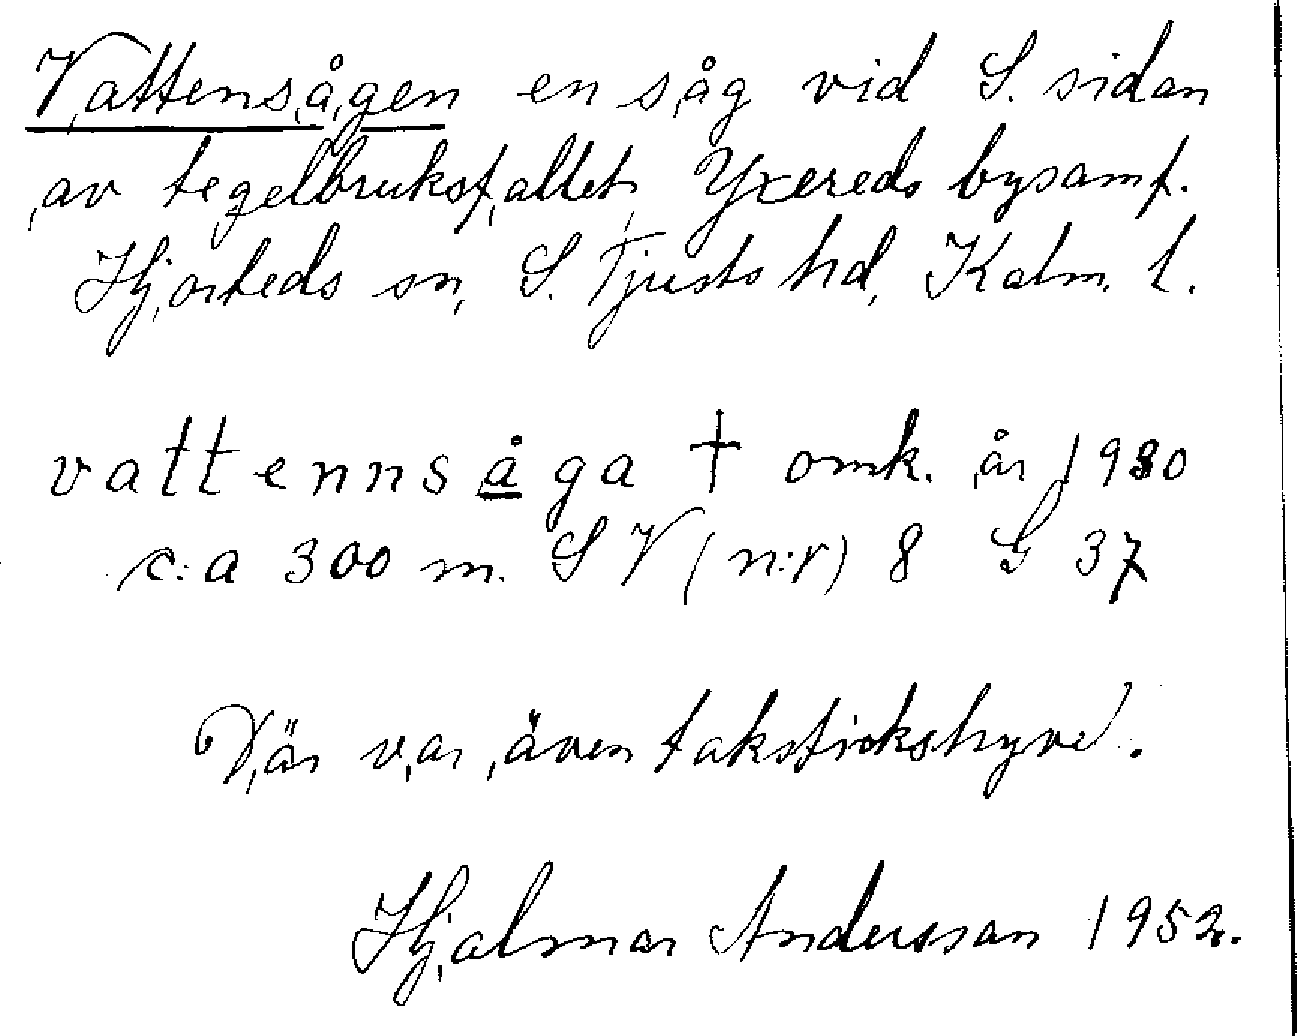 Vattensågen en såg vid S. sidan
av tegelbruksfallet, Yxereds bysamf.
Hjorteds sn, S. Tjusts hd, Kalm. l.
vattennsåga † omk. år 1930
c:a 300 m. SV (n:r) 8 G 37
Där var även takstickshyvel.
Hjalmar Andersson 1952.